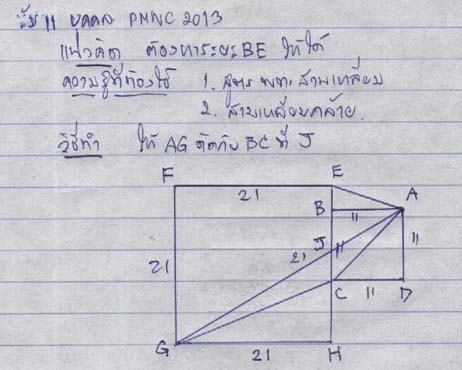 ข้อ 11 บุคคล PMWC 2013
แนวคิด ต้องหาระยะ BE ให้ได้
ความรู้ที่ต้องใช้ 1. สูตร พท. สามเหลี่ยม
2. สามเหลี่ยมคล้าย.
วิธีทำ ให้ AG ตัดกับ BC ที่ J
F E
21 B A
11
21 J 11 11
21
C 11 D
G 21 H